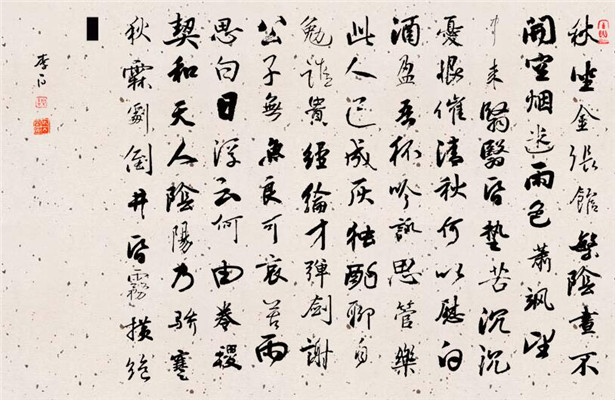 秋坐金張館繁陰晝不
開空烟迷雨色蕭颯望
中来翳翳昏墊苦沉沉
憂恨催清秋何以慰白
酒盈吾杯吟詠思管樂
此人已成灰独酌聊自
勉誰貴經綸才彈劍謝
公子無魚良可哀苦雨
思白日浮云何由卷稷
契和天人陰陽乃驕蹇
秋霖劇倒井昏霧橫絕
李白